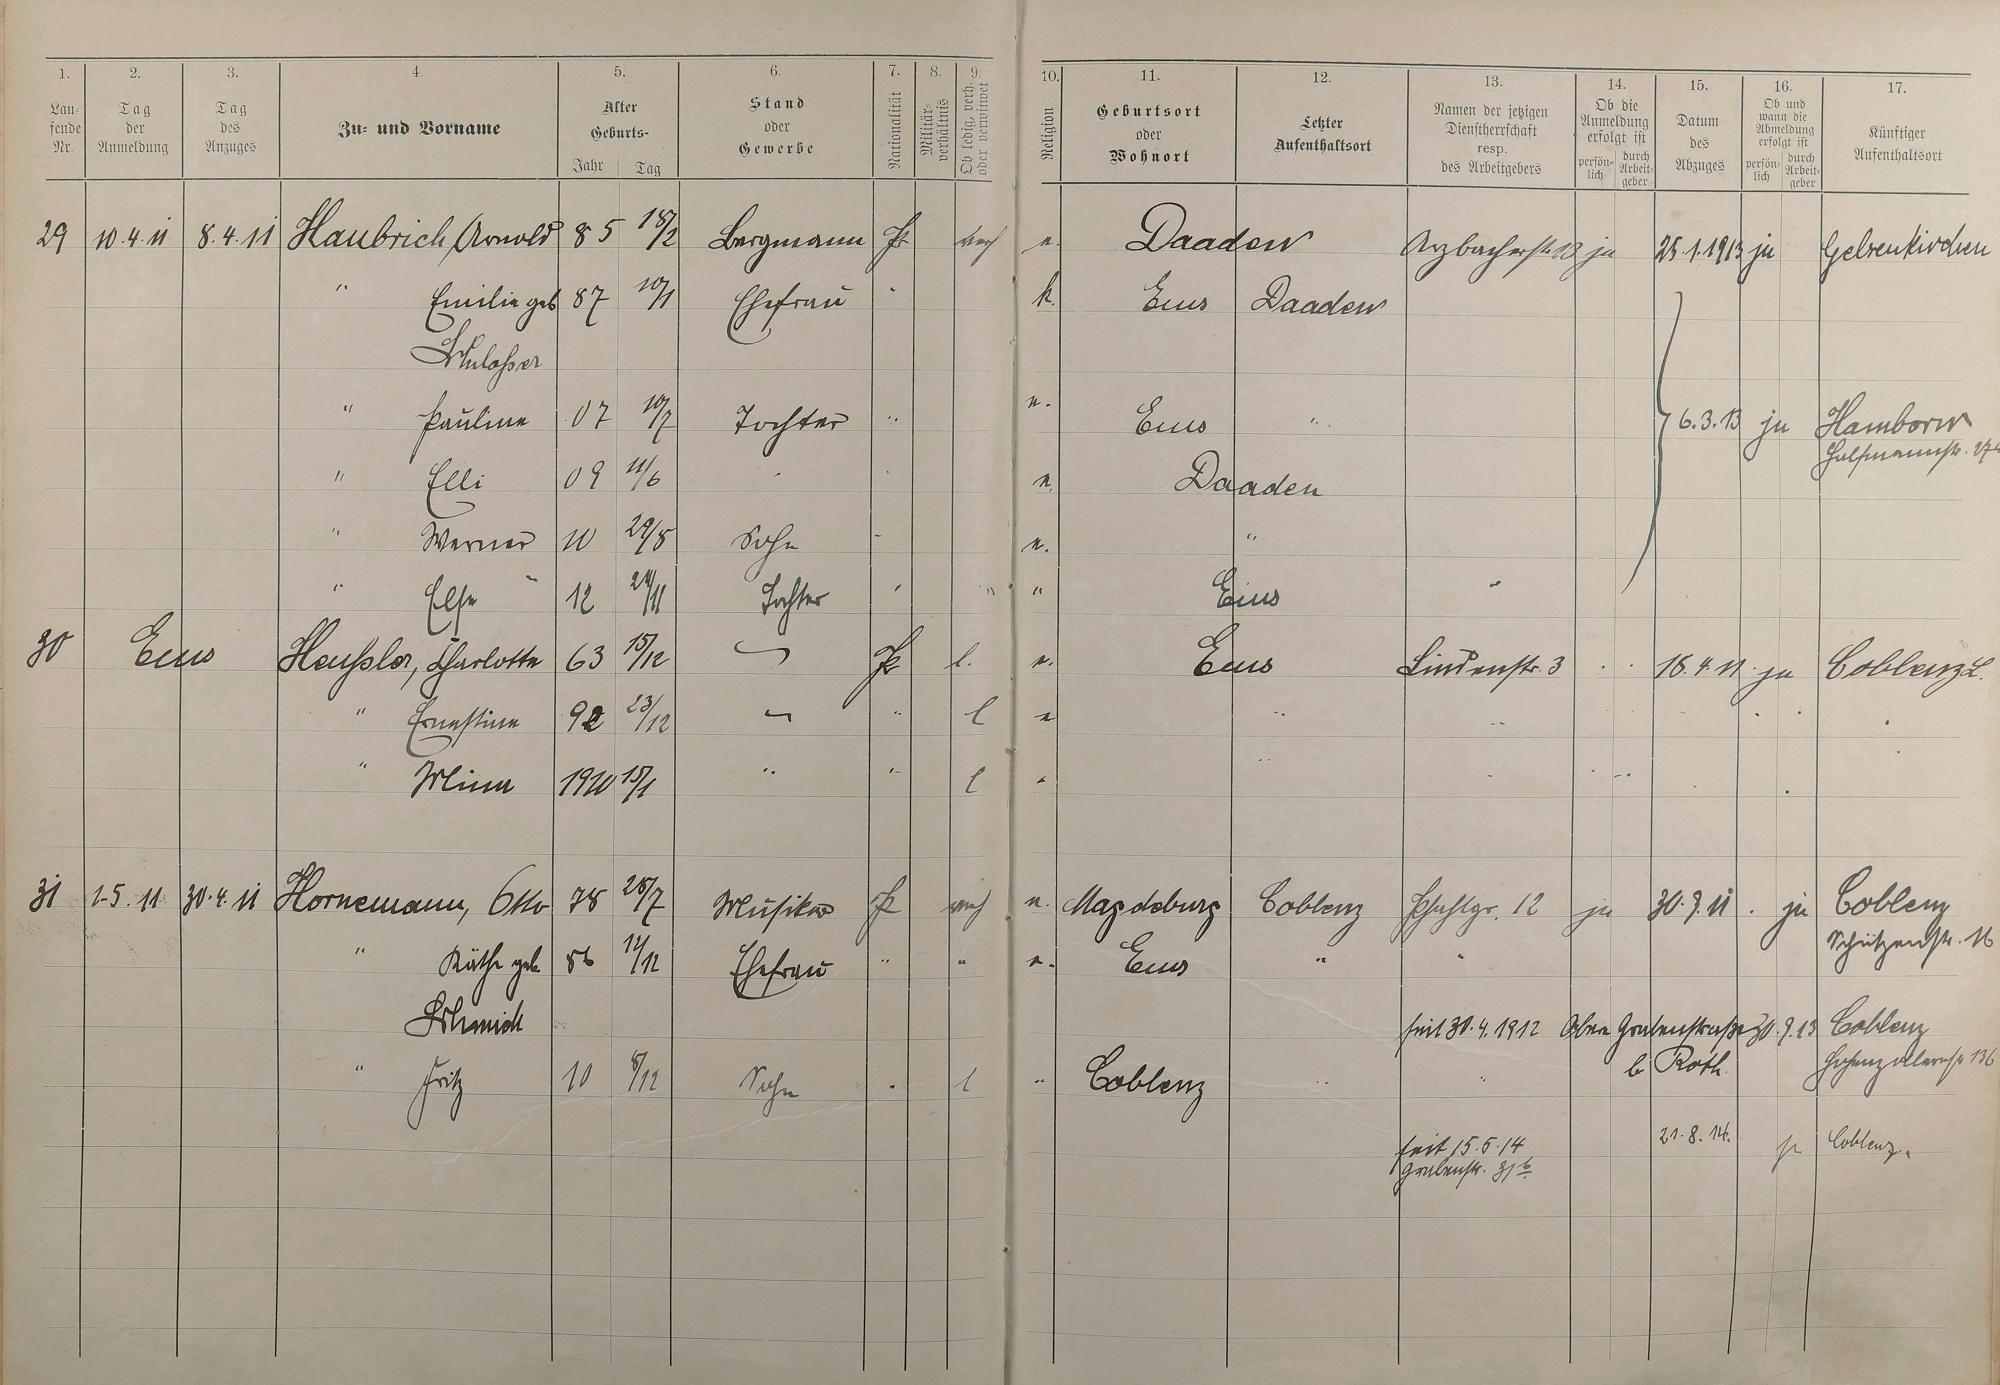 1. 2. 3. 4. 5. 6. 7. 8. 9. 10. 11. 12. 13. 14. 15. 16. 17.
Lau-fende Nr.
Tag der Anmeldung
Tag des Anzuges
Zu- und Vorname
Alter Geburts- Jahr Tag
Stand oder Gewerbe
Nationalität
Militär-verhältnis
Ob ledig, verh. oder verwitwet
Religion
Geburtsort oder Wohnort
Letzter Aufenthaltsort
Namen der jetzigen Dienstherrschaft resp. des Arbeitgebers
Ob die Anmeldung erfolgt ist persön-lich durch Arbeit-geber
Datum des Abzuges
Ob und wann die Abmeldung erfolgt ist persön-lich durch Arbeit-geber
Künftiger Aufenthaltsort
29 10.4.11 8.4.11 Haubrich, Arnold 85 18/2 Bergmann Pr verh e. Daaden Arzbacherstr. 13 ja 25.1.1913 ja Gelsenkirchen
" Emilie geb 87 10/1 Ehefrau " k. Ems Daaden
Schlosser
" Pauline 07 10/7 Tochter " e. Ems " 6.3.13 ja Hamborn
" Elli 09 11/6 " e. Daaden
" Werner 10 29/8 Sohn " e. "
" Else 12 24/11 Tochter " " " Ems "
30 Ems Heußler, Charlotte 63 15/12 Pr l. e. Ems Lindenstr. 3 18.4.11 ja Coblenz L.
" Ernestine 92 23/12 " l e "
" Minna 1910 15/1 " " l " "
31 1.5.11 30.4.11 Hornemann, Otto 78 28/7 Musiker Pr verh e. Magdeburg Coblenz Pfahlgr. 12 ja 30.9.11 ja Coblenz
Schützenstr. 16
" Käthe geb. 86 12/12 Ehefrau " " e. Ems " "
Schmidt seit 30.4.1912 Obere Grabenstraße 30.9.13 Coblenz
b Roth. Hohenzollernstr 136
" Fritz 10 8/12 Sohn " l " Coblenz " "
seit 15.5.14 21.8.14. ja Coblenz.
Grabenstr. 31 b